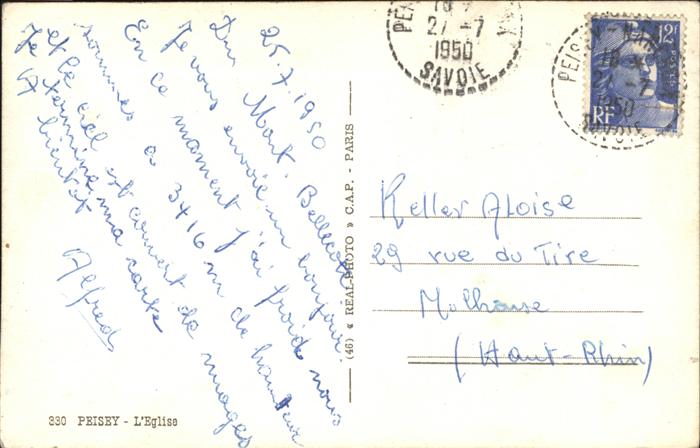 25.7.1950
Du Mont Bellecôte
Je vous envoie un bonjour.
En ce moment j'ai froid nous
sommes a 3416 m de hauteur
et le ciel est couvert de nuages
Je termine ma carte
A bientôt
Alfred
330 PEISEY - L'Eglise
(46) « REAL-PHOTO » C.A.P. - PARIS
PEISEY-NAN
18
27-7
1950
SAVOIE
12F
POSTES
RF
PEISEY-NAN
18
27-7
1950
SAVOIE
Keller Aloise
29 rue du Tire
Mulhouse
(Haut-Rhin)